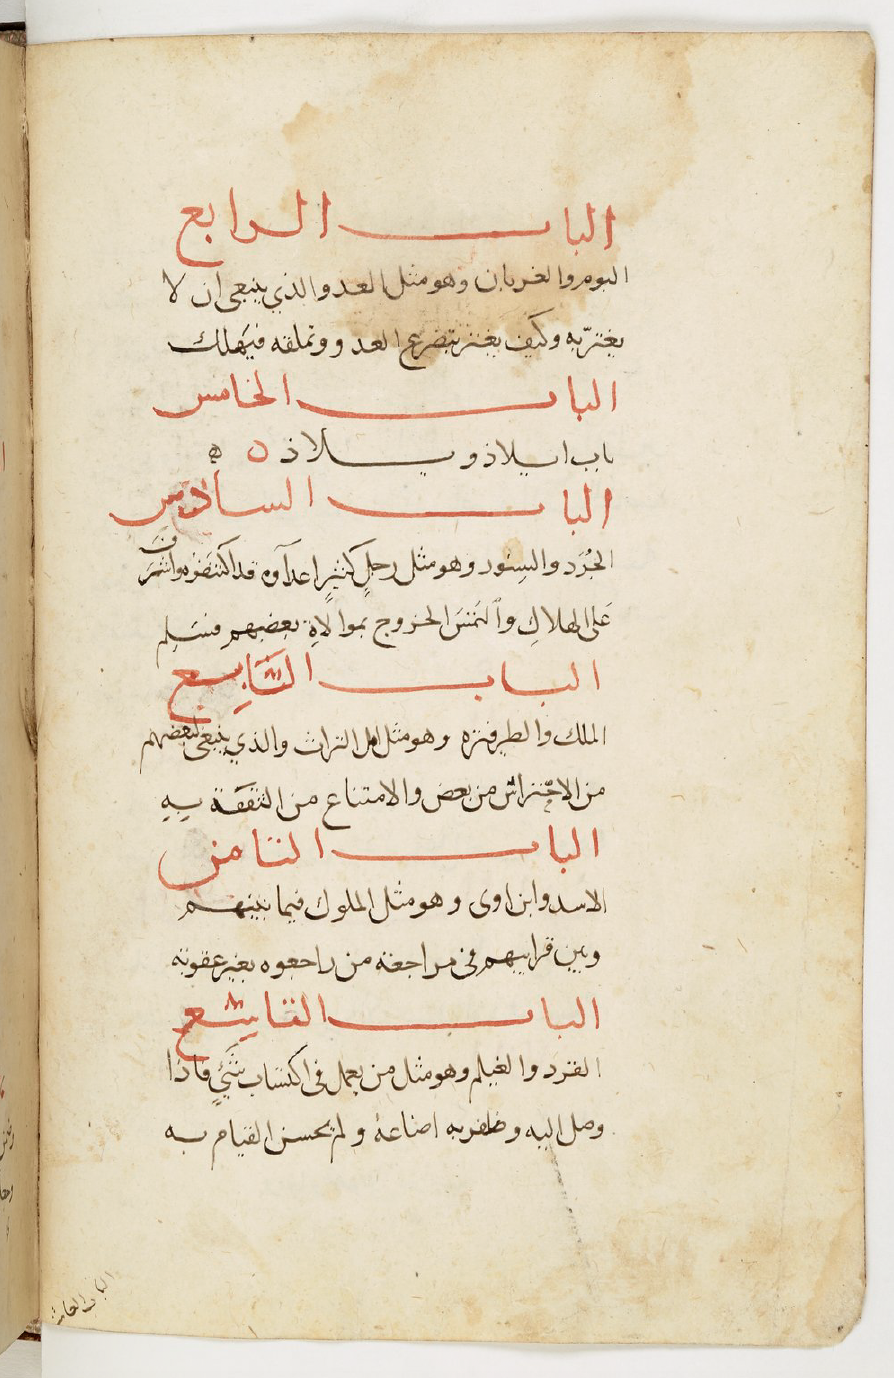 الباب الرابع
البوم والغربان وهو مثل العدو الذي ينبغي ان لا
يغترّ به وكيف يغتر بتضرع العدو وتملقه فيهلك
الباب الخامس
باب ايلاذ و بيلاذ
الباب السادس
الجُرَذ والسنور وهو مثل رجلٍ كثيرٍ اعدآوه قد اكتنفوه واشرف
على الهلاكِ والتمسَ الخروج بموالاةِ بعضهم فسَلِم
الباب السابع
الملك والطير فنزه وهو مثل اهل التراث والذي ينبغي لبعضهم
من الاحتراس من بعض والامتناع من الثقة بهِ
الباب الثامن
الاسد وابن اوى وهو مثل الملوك فيما بينهم
وبين قرابيهم في مراجعة من راجعوه بغير عقوبة
الباب التاسع
القرد والغيلم وهو مثل من يعمل في اكتساب شَيْءٍ فاذا
وصل اليه وظفر به اضاعهُ ولم يحسن القيام به
الباب العاشر